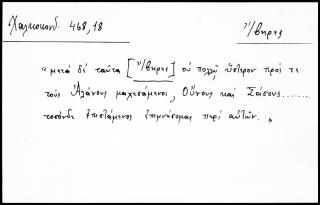 Χαλκοκονδ. 468,18 Ἴβηρες
" μετὰ δὲ ταῦτα [Ἴβηρες] οὐ πολλῷ ὕστερον πρός τε
τοὺς Ἀλάνους μαχεσάμενοι, Οὔννους καὶ Σάσους........
τοσόνδε ἐπιστάμενος ἐπιμνήσομαι περὶ αὐτῶν. "